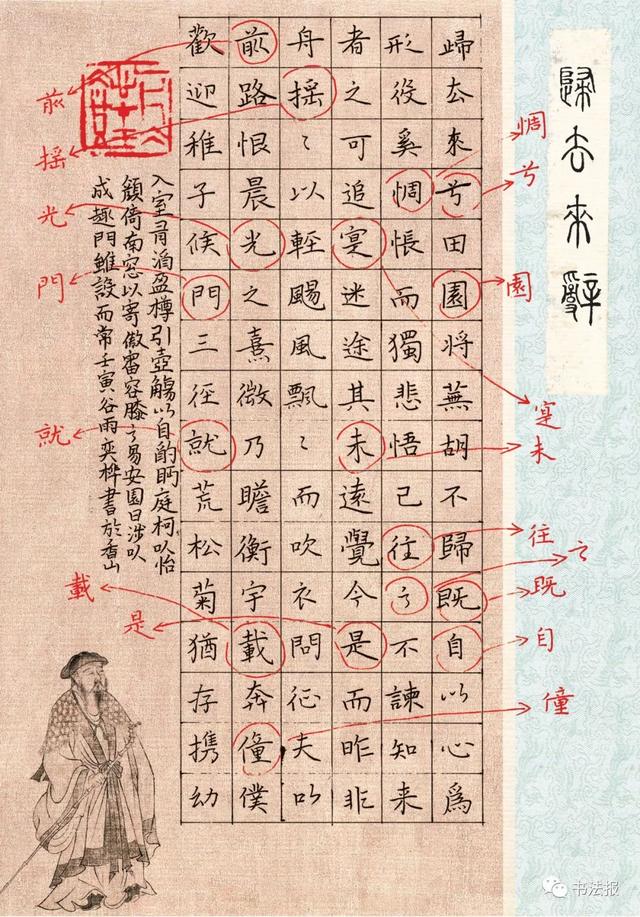 歸去來辭
歸去來兮田園將蕪胡不歸既自以心為
形役奚惆悵而獨悲悟已往之不諫知来
者之可追寔迷途其未遠覺今是而昨非
舟摇〻以輕颺風飄〻而吹衣問征夫以
前路恨晨光之熹微乃瞻衡宇載奔僮僕
歡迎稚子候門三徑就荒松菊猶存携幼
入室有酒盈樽引壺觴以自酌眄庭柯以怡
顏倚南窓以寄傲審容膝之易安園日涉以
成趣門雖設而常壬寅谷雨奕樺書於香山
惆
兮
園
寔
未
往
之
既
自
僮
前
摇
光
門
就
載
是
书法报